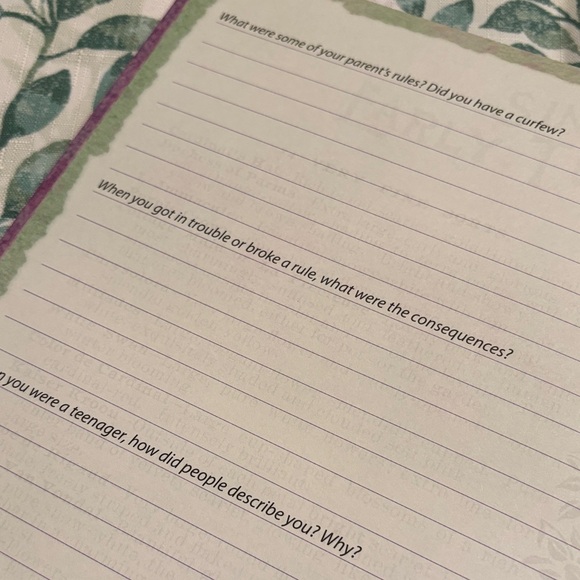 What were some of your parent's rules? Did you have a curfew?
When you got in trouble or broke a rule, what were the consequences?
you were a teenager, how did people describe you? Why?